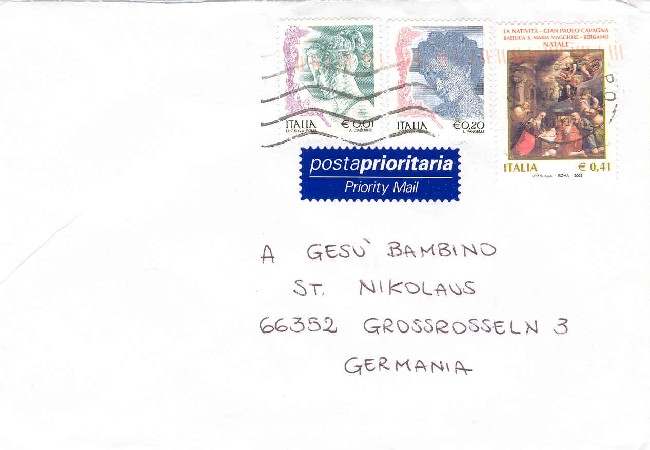 LA NATIVITÀ - GIAN PAOLO CAVAGNA
BASILICA S. MARIA MAGGIORE - BERGAMO
NATALE
ITALIA € 0,01
ITALIA € 0,20
ITALIA € 0,41
postaprioritaria
Priority Mail
A GESÙ BAMBINO
ST. NIKOLAUS
66352 GROSSROSSELN 3
GERMANIA